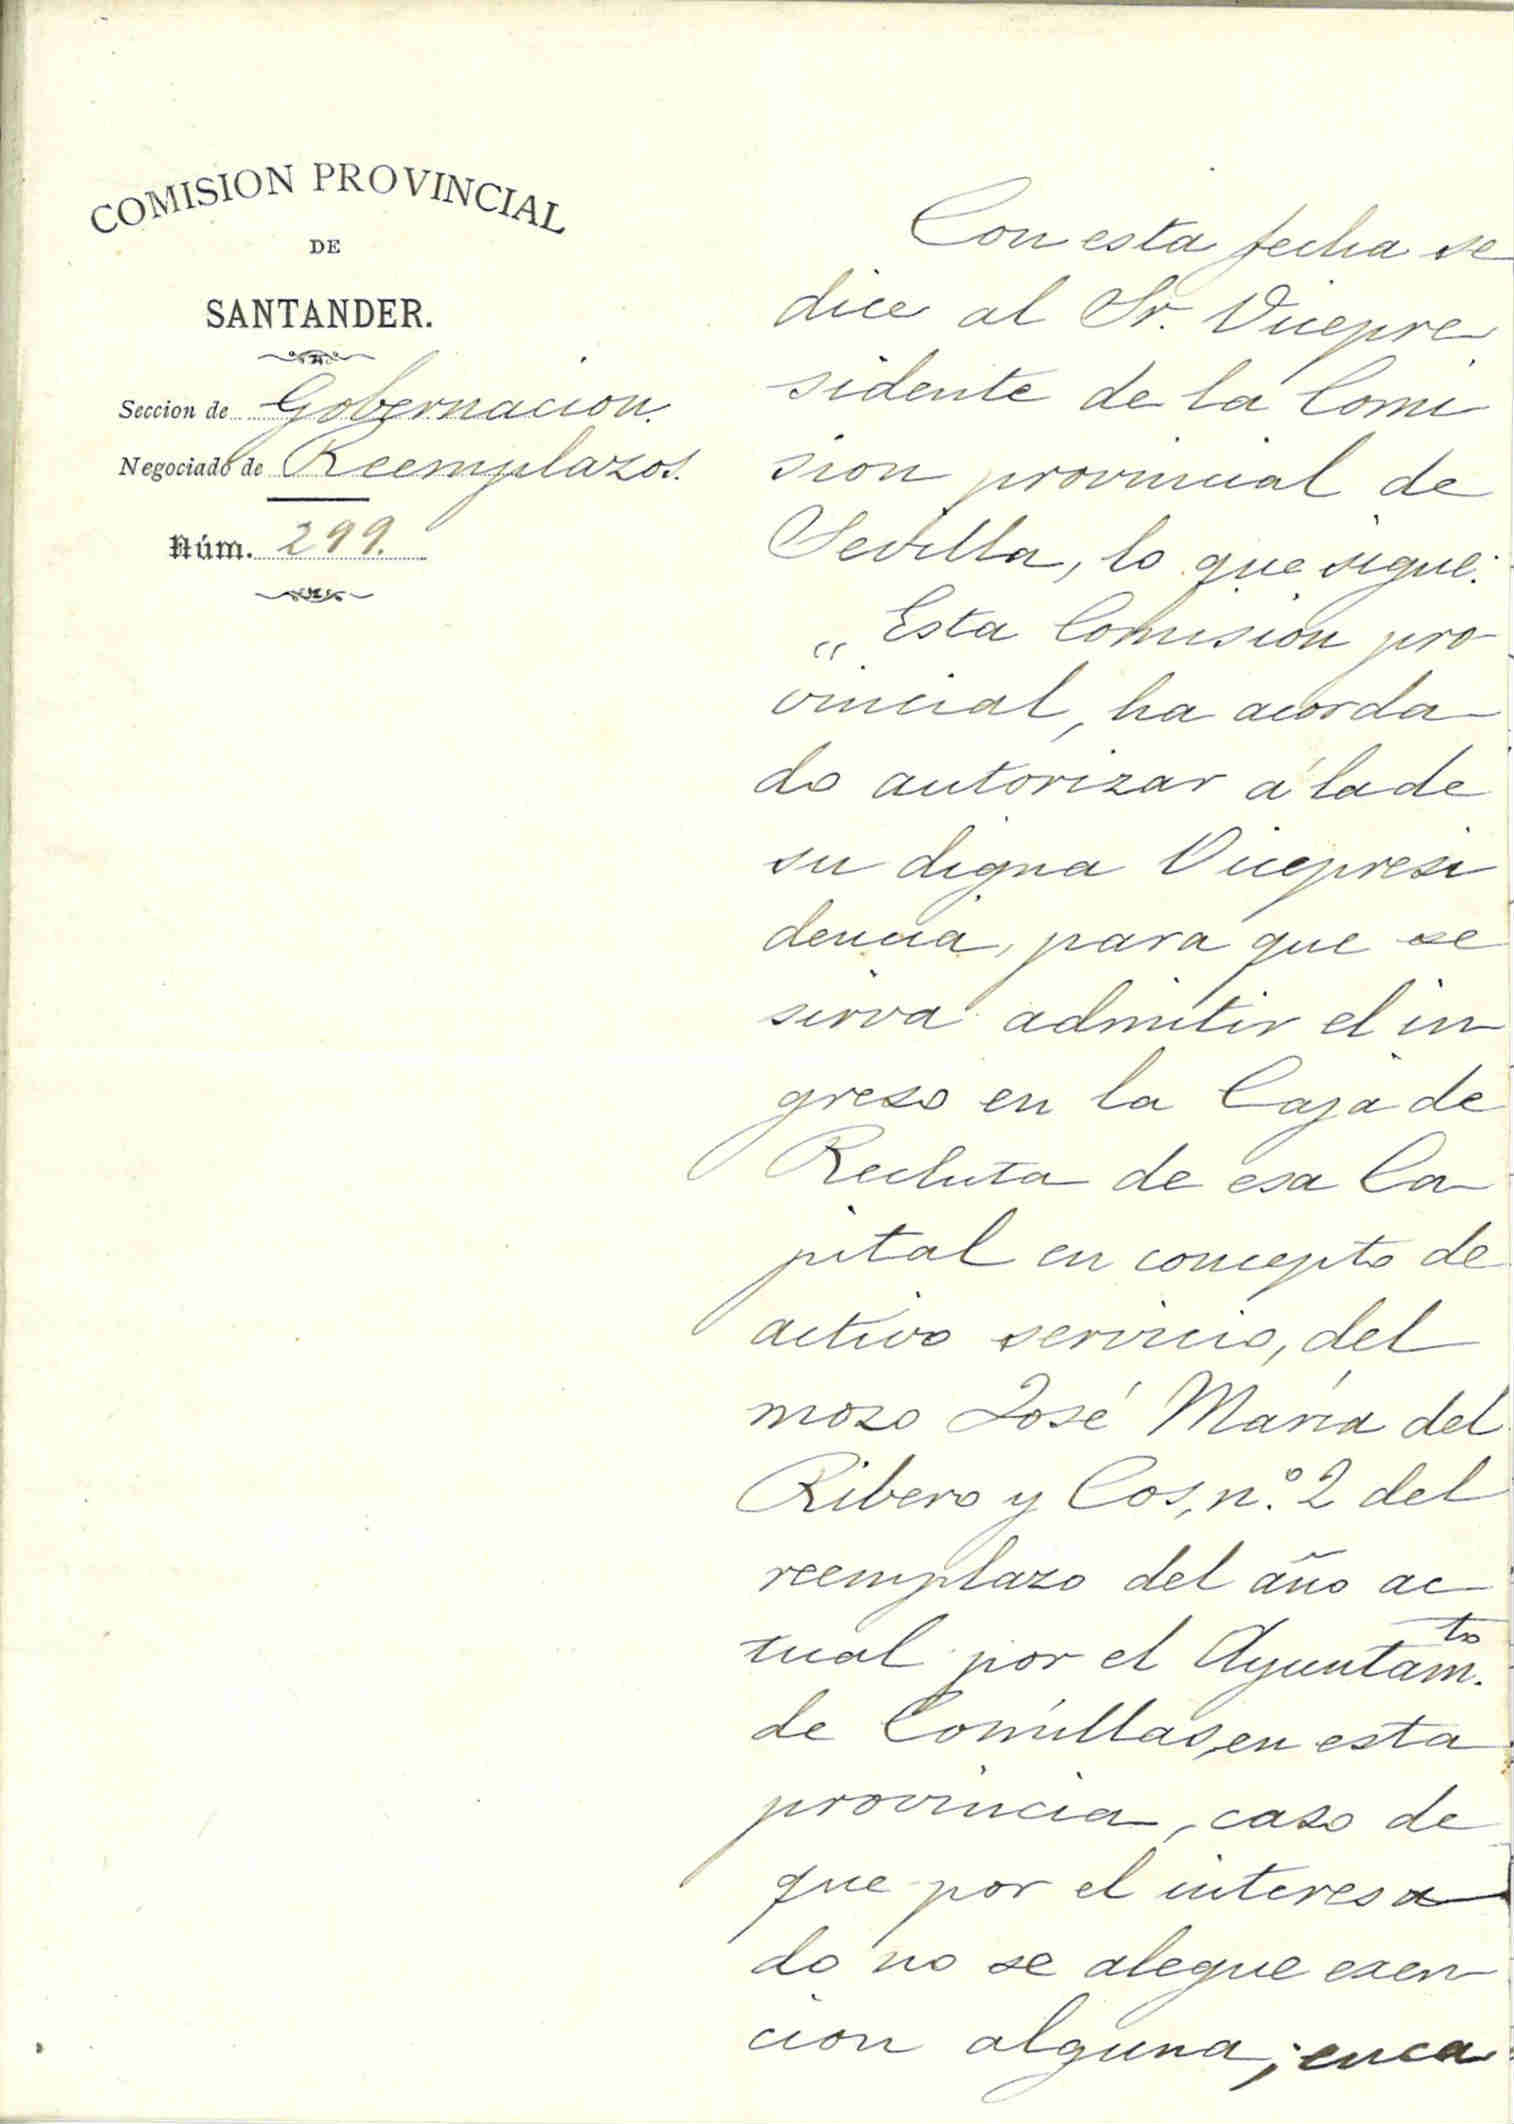 COMISION PROVINCIAL
DE
SANTANDER.
Seccion de Gobernacion.
Negociado de Reemplazos.
Núm. 299.
Con esta fecha se
dice al Sr. Vicepre
sidente de la Comi
sion provincial de
Sevilla, lo que sigue:
„Esta Comision pro
vincial, ha acorda
do autorizar á la de
su digna Vicepresi
dencia, para que se
sirva admitir el in
greso en la Caja de
Recluta de esa Ca
pital en concepto de
activo servicio, del
mozo José María del
Ribero y Cos, n.º 2 del
reemplazo del año ac
tual por el Ayuntam.to
de Comillas, en esta
provincia, caso de
que por el interesa
do no se alegue exen
cion alguna; en ca